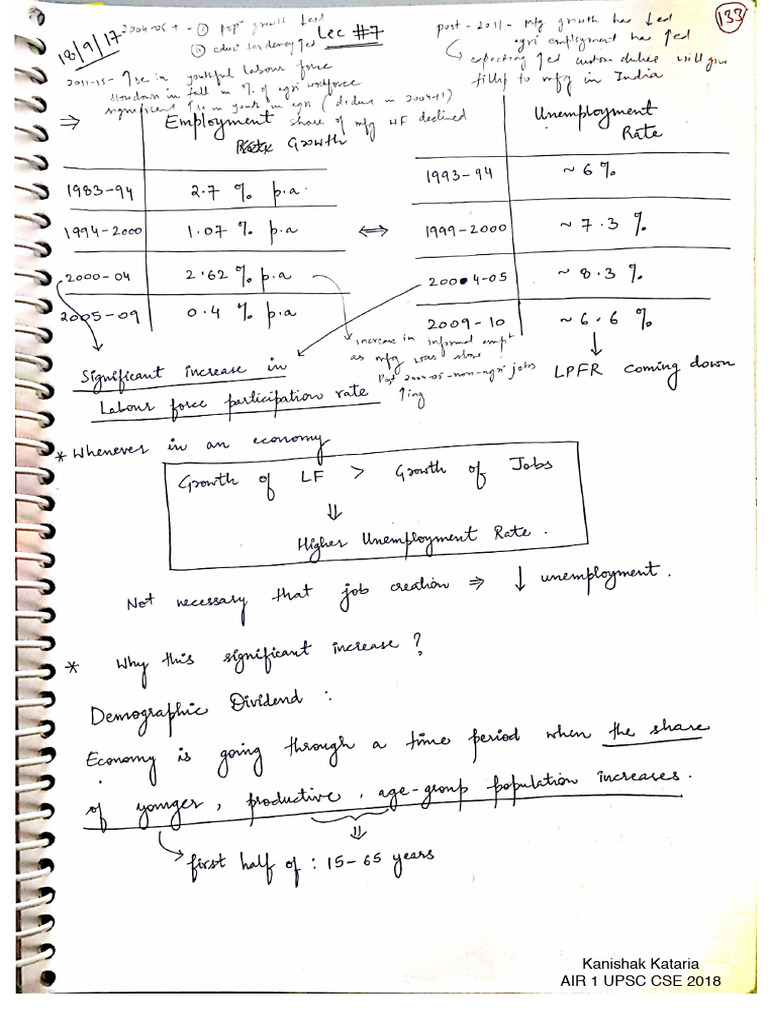 133
18/9/17
Lec #7
2004-05 + - ① popn growth ↓sed
② educ tendency ↑ed
post-2011 - Mfg growth has ↓ed
agri employment has ↑ed
↳ expecting ↑ed custom duties will give
fillip to mfg in India
2011-15 - ↑se in youthful labour force
slowdown in fall in % of agri workforce
significant ↑se in youth in agri
share of mfg WF declined
⇒ Employment
Growth
1983-94 2.7 % p.a.
1994-2000 1.07 % p.a
2000-04 2.62 % p.a
2005-09 0.4 % p.a
⇔
Unemployment
Rate
1993-94 ~ 6 %
1999-2000 ~ 7.3 %
2004-05 ~ 8.3 %
2009-10 ~ 6.6 %
↓
LPFR coming down
increase in informal empt
as mfg was slow
Post 2004-05 - non-agri jobs
↑ing
Significant increase in
Labour force participation rate
* Whenever in an economy
Growth of LF > Growth of Jobs
⇓
Higher Unemployment Rate.
Not necessary that job creation ⇒ ↓ unemployment.
* Why this significant increase?
Demographic Dividend :
Economy is going through a time period when the share
of younger, productive, age-group population increases.
⇓
↳ first half of : 15-65 years
Kanishak Kataria
AIR 1 UPSC CSE 2018